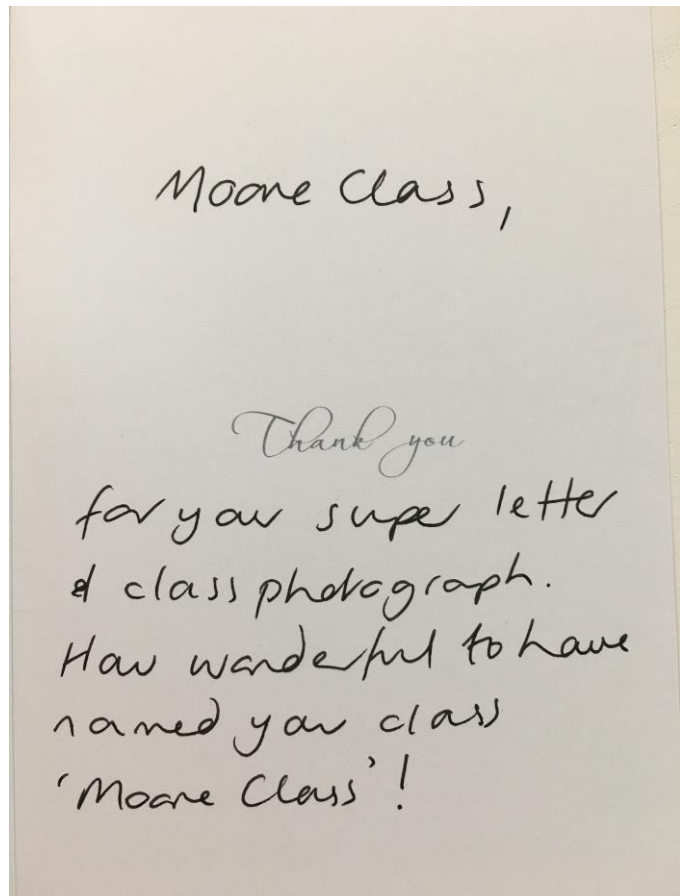 Moore Class,
Thank you
for your super letter
& class photograph.
How wonderful to have
named your class
'Moore Class'!